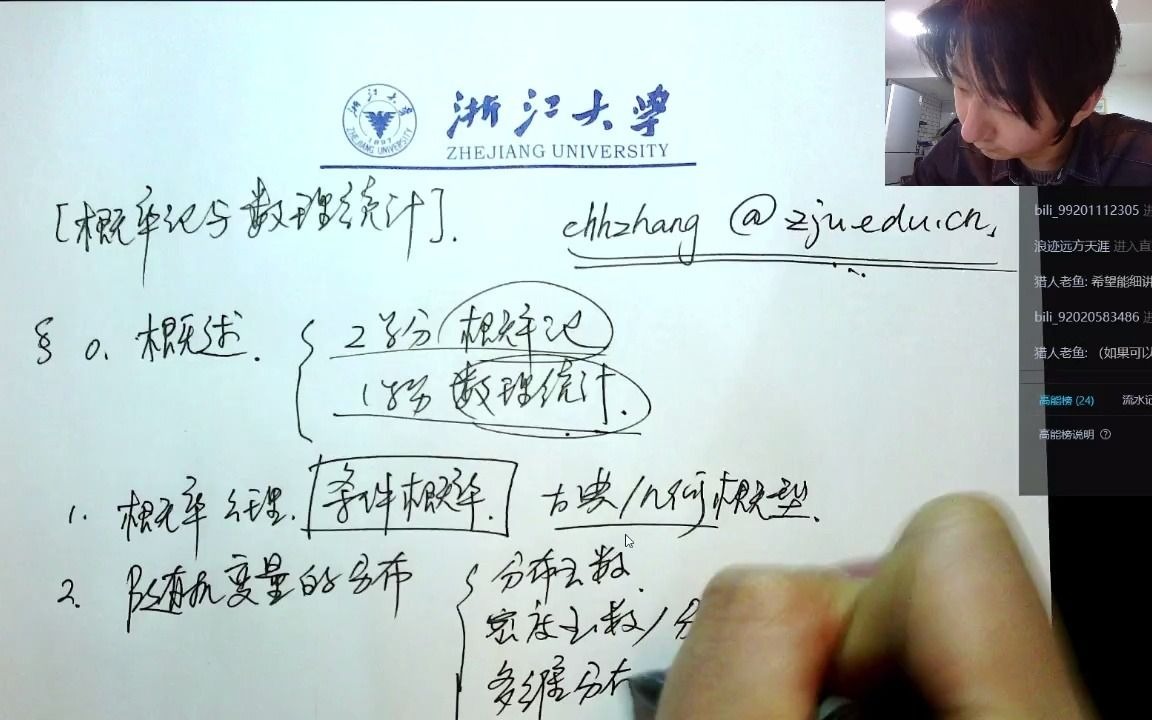 浙江大学
ZHEJIANG UNIVERSITY
[概率论与数理统计].
chhzhang @zju.edu.cn,
§ 0. 概述.
2学分 概率论
1学分 数理统计.
1. 概率公理. 条件概率. 古典/几何概型.
2. 随机变量的分布
分布函数.
密度函数/分
多维分布
bili_99201112305 进
浪迹远方天涯 进入直
猎人老鱼: 希望能细讲
bili_92020583486 进
猎人老鱼: (如果可以
高能榜 (24) 流水记
高能榜说明